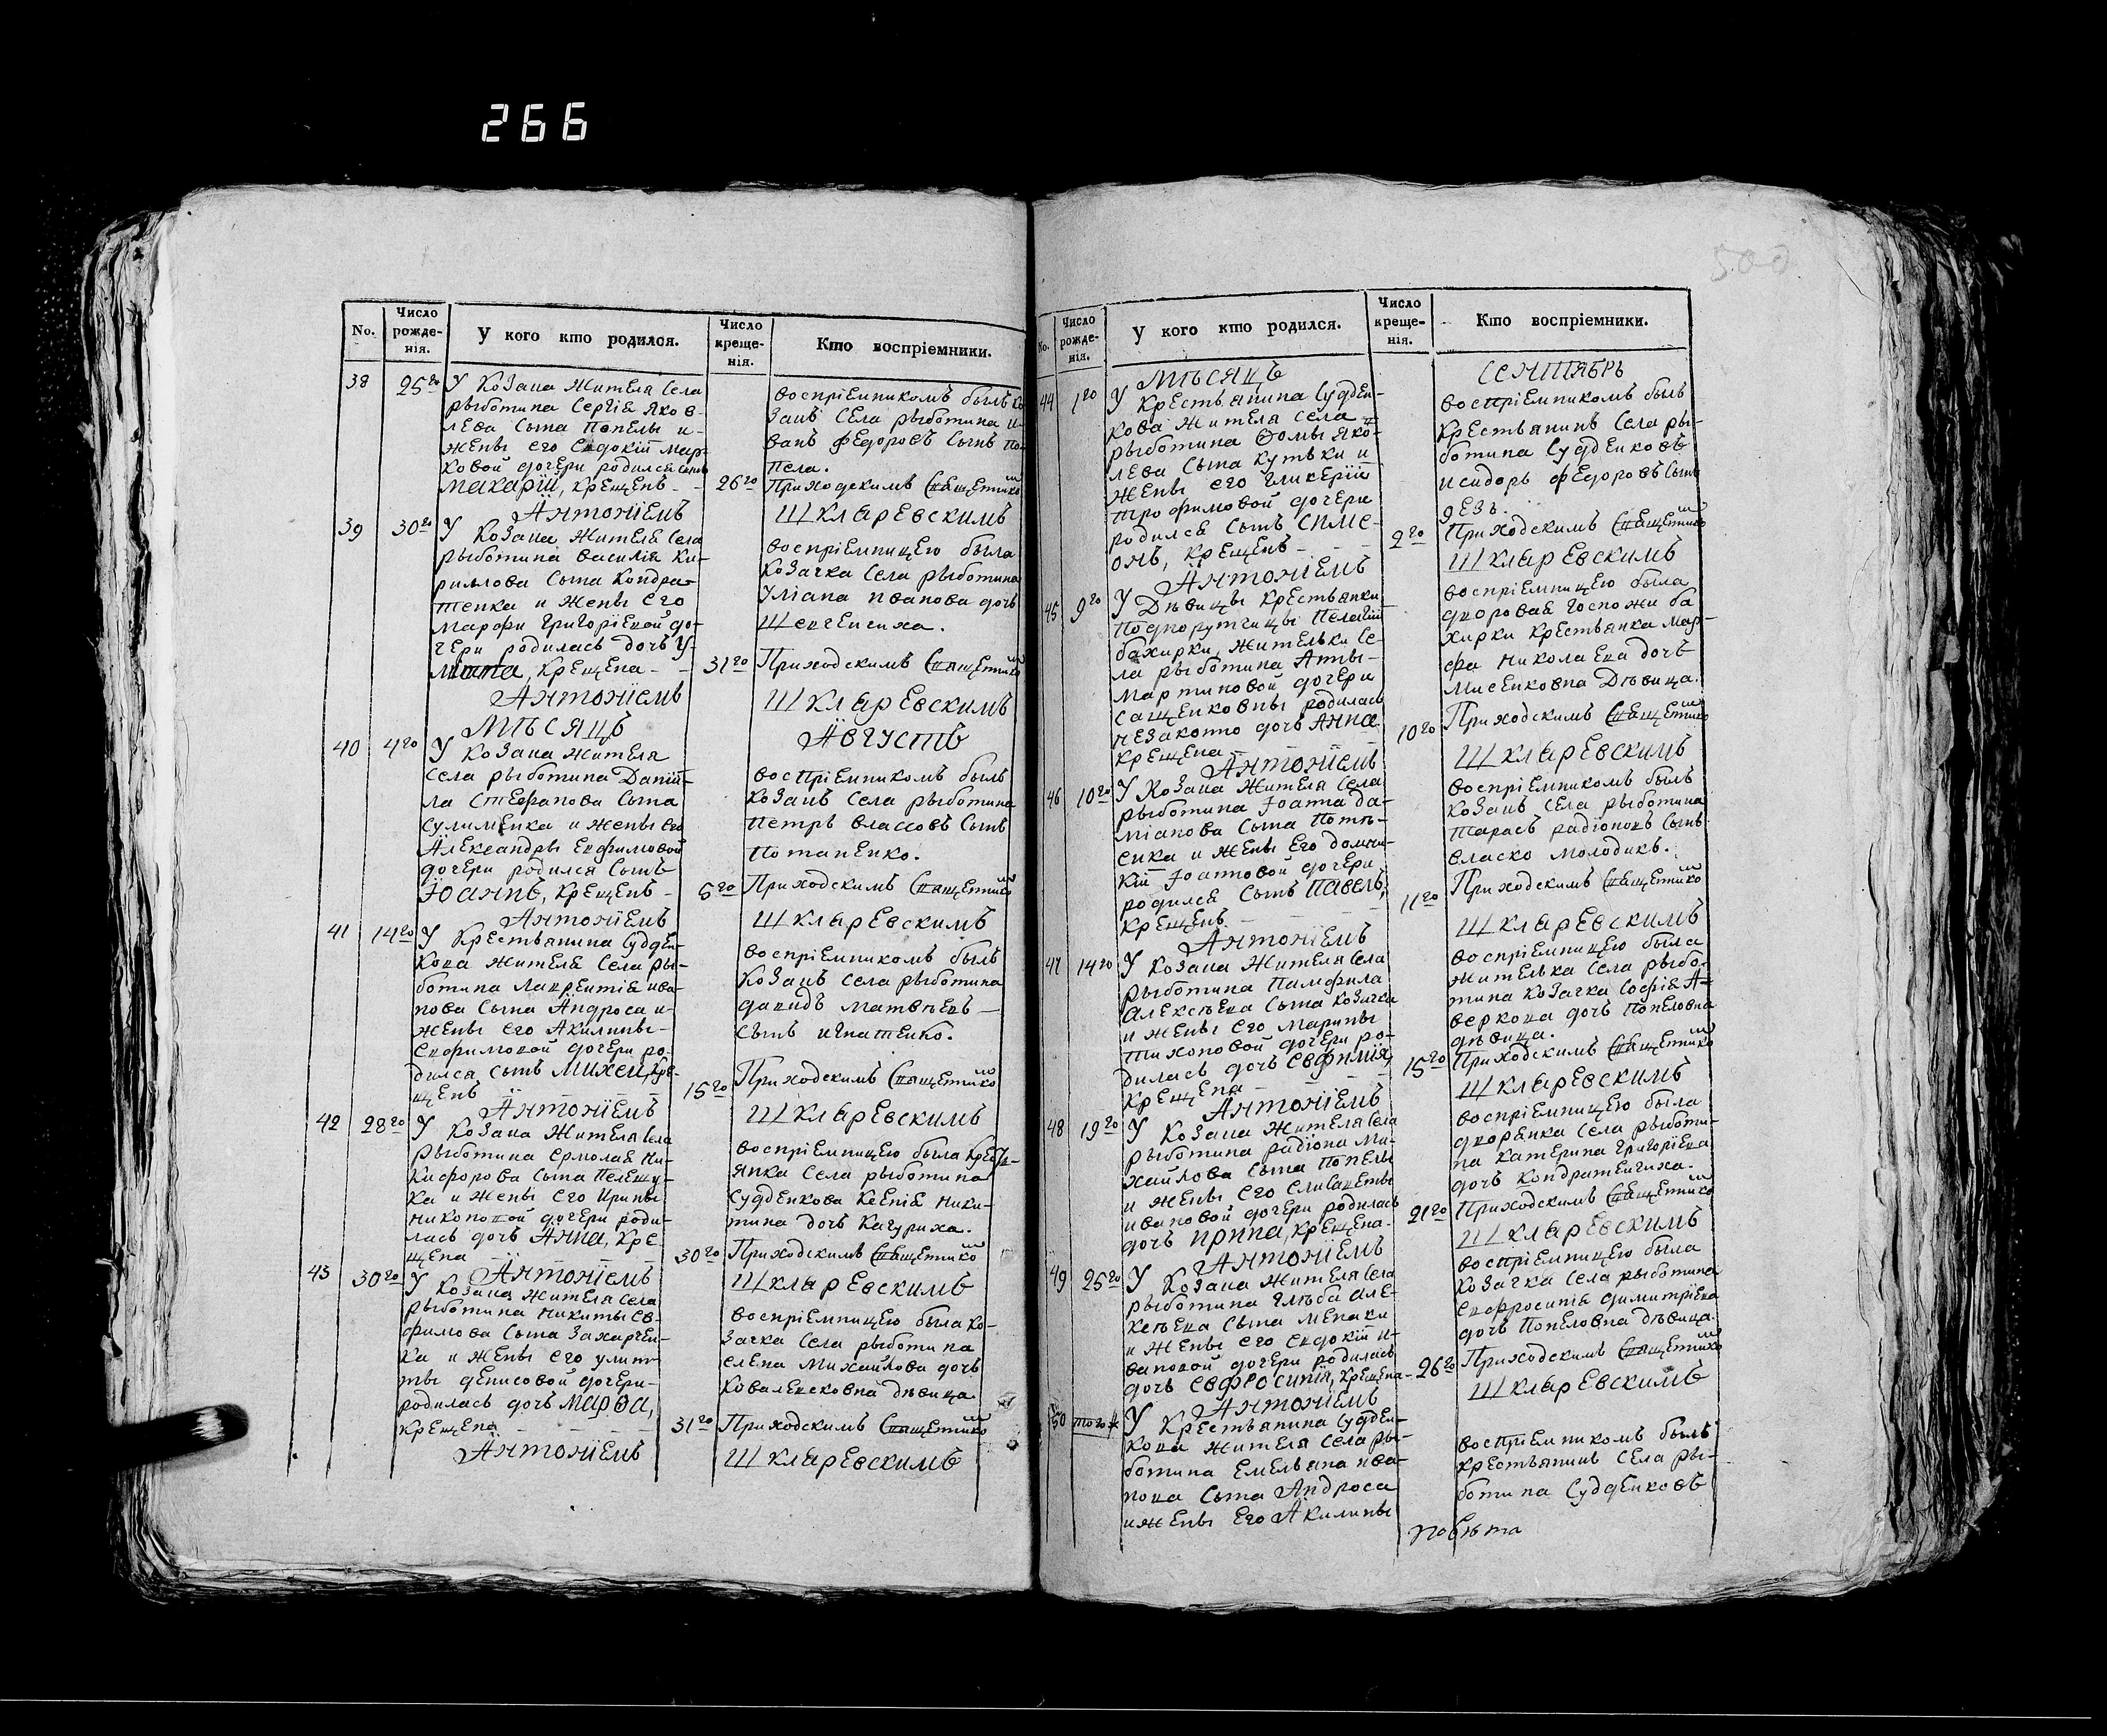 266
500
No.
Число рожде-нія.
У кого кто родился.
Число креще-нія.
Кто воспріемники.
38
25го
У Козака Жителя Села
рыботина Сергія Яков-
лева Сына Попелы и
жены его Евдокіи Мар-
ковой дочери родился сынъ
Макарій, крещенъ
Антоніемъ
воспріемникомъ былъ ко
закъ Села рыботина И-
ванъ Федоровъ Сынъ По-
пела.
26го
Приходскимъ Священнико
Шкляревскимъ
39
30го
У Козака Жителя Села
рыботина Василія Ки-
рилова Сына Кондра-
тенка и Жены Его
Марфы Григоріевой до-
чери родилась дочь У-
ліана, крещена
Антоніемъ
воспріемницею была
Козачка Села рыботина
Уліана Иванова дочь
31го
Приходскимъ Священнико
Шкляревскимъ
Мѣсяцъ
Августъ
40
4го
У Козака Жителя
Села рыботина Даніи-
ла Стефанова Сына
Сулименка и Жены его
Александры Евфимовой
дочери родился Сынъ
Іоаннъ, крещенъ
Антоніемъ
воспріемникомъ былъ
Козакъ Села рыботина
Петръ Власовъ Сынъ
Потапенко.
5го
Приходскимъ Священнико
Шкляревскимъ
41
14го
У Крестьянина Судден-
кова жителя Села ры-
ботина Лаврентія ива-
нова Сына Андроса и
жены его Акилины
Евфимовой дочери ро-
дился сынъ Михей, кре-
щенъ
Антоніемъ
воспріемникомъ былъ
Козакъ Села рыботина
давидъ матвѣевъ
сынъ игнатенко.
15го
Приходскимъ Священнико
Шкляревскимъ
42
28го
У Козака Жителя Села
Рыботина Ермолая Ни-
кифорова Сына Пелешу-
ка и Жены его Ирины
никоновой дочери роди-
лась дочь Анна, кре
щена
Антоніемъ
воспріемницею была крестъ-
янка Села рыботина
Судденкова Ксенія Ники-
тина дочь Качуриха.
30го
Приходскимъ Священнико
Шкляревскимъ
43
30го
У Козака Жителя Села
рыботина никиты Ев-
фимова Сына Захарчен-
ка и Жены его улит-
ты денисовой дочери
родилась дочь Марѳа,
крещена
Антоніемъ
воспріемницею была ко-
зачка Села рыботина
елена Михайлова дочь
Ковалевсковна дѣвица
31го
Приходскимъ Священнико
Шкляревскимъ
No.
Число рожде-нія.
У кого кто родился.
Число креще-нія.
Кто воспріемники.
Мѣсяцъ
Сентябрь
44
1го
У Крестьянина Судден-
кова Жителя Села
рыботина Ѳомы Яко-
лева Сына Кутьки и
Жены его Гликеріи
трофимовой дочери
родился Сынъ Симе-
онъ, крещенъ
Антоніемъ
воспріемникомъ былъ
Крестьянинъ Села ры-
ботина Судденковъ
исидоръ Федоровъ Сынъ
2го
Приходскимъ Священнико
Шкляревскимъ
45
9го
У Дѣвицы Крестьянки
Подпорутчицы Пелагіи
бахирки, Жительки Се-
ла рыботина Анны
Мартиновой дочери
Сащенковны родилась
незаконно дочь Анна
крещена
Антоніемъ
воспріемницею была
дворовая Госпожи ба
хирки Крестьянка Мар-
фа николаева дочь
Мисенковна Дѣвица.
10го
Приходскимъ Священнико
Шкляревскимъ
46
10го
У Козака Жителя Села
рыботина Іоанна да-
міанова Сына Потѣ-
енка и Жены Его домни-
кіи Іоанновой дочери
родился Сынъ Павелъ,
крещенъ
Антоніемъ
воспріемникомъ былъ
Козакъ Села рыботина
тарасъ радіоновъ Сынъ
власко молодикъ.
11го
Приходскимъ Священнико
Шкляревскимъ
47
14го
У Козака Жителя Села
рыботина Памфила
Алексѣева Сына Козачка
и жены Его Марины
тихоновой дочери ро-
дилась дочь Евфимія,
крещена
Антоніемъ
воспріемницею была
жителька Села рыбо-
тина Козачка Софія А-
веркова дочь Попеловна
дѣвица.
15го
Приходскимъ Священнико
Шкляревскимъ
48
19го
У Козака Жителя Села
рыботина радіона Ми-
хайлова Сына Попелы
и Жены Его Елисаветы
ивановой дочери родилась
дочь Ирина, крещена.
Антоніемъ
воспріемницею была
дворянка Села рыботи-
на Катерина Григоріева
дочь Кондратенчиха.
21го
Приходскимъ Священнико
Шкляревскимъ
49
25го
У Козака Жителя Села
рыботина Глѣба Але-
ксѣева Сына Менаки
и Жены его Евдокіи И-
вановой дочери родилась
дочь Евфросинія, крещена
Антоніемъ
воспріемницею была
Козачка Села рыботина
Евфросинія димитріева
дочь Попеловна дѣвица.
26го
Приходскимъ Священнико
Шкляревскимъ
50
того ж
У Крестьянина Судден-
кова жителя Села ры-
ботина Емельяна ива-
нова Сына Андроса
и жены Его Акилины
воспріемникомъ былъ
крестьянинъ Села ры-
ботина Судденковъ